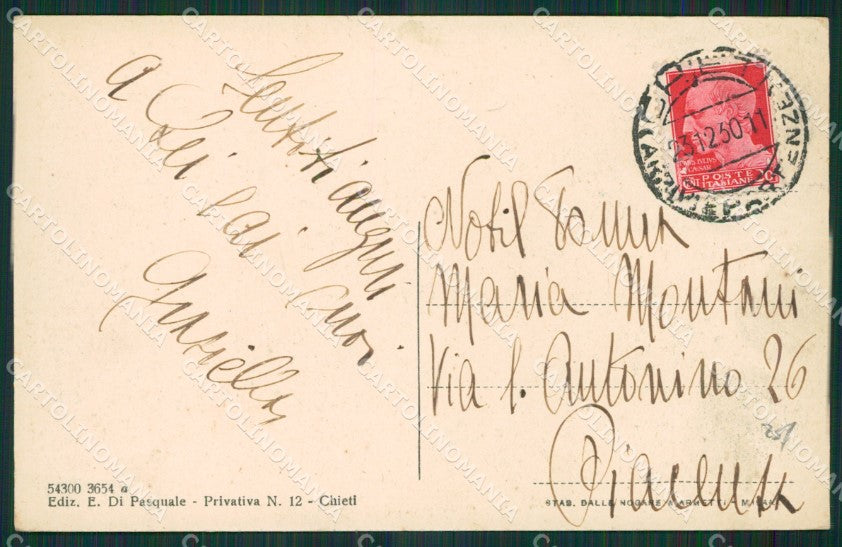 Sentiti auguri
a Lei e ai suoi
Graziella
Nobil Donna
Maria Montani
Via S. Antonino 26
Piacenza
CHIETI
23.12.30 11
POSTE
ITALIANE
54300 3654 a
Ediz. E. Di Pasquale - Privativa N. 12 - Chieti
STAB. DALLE NOGARE & ARMETTI - MILANO
CARTOLINOMANIA